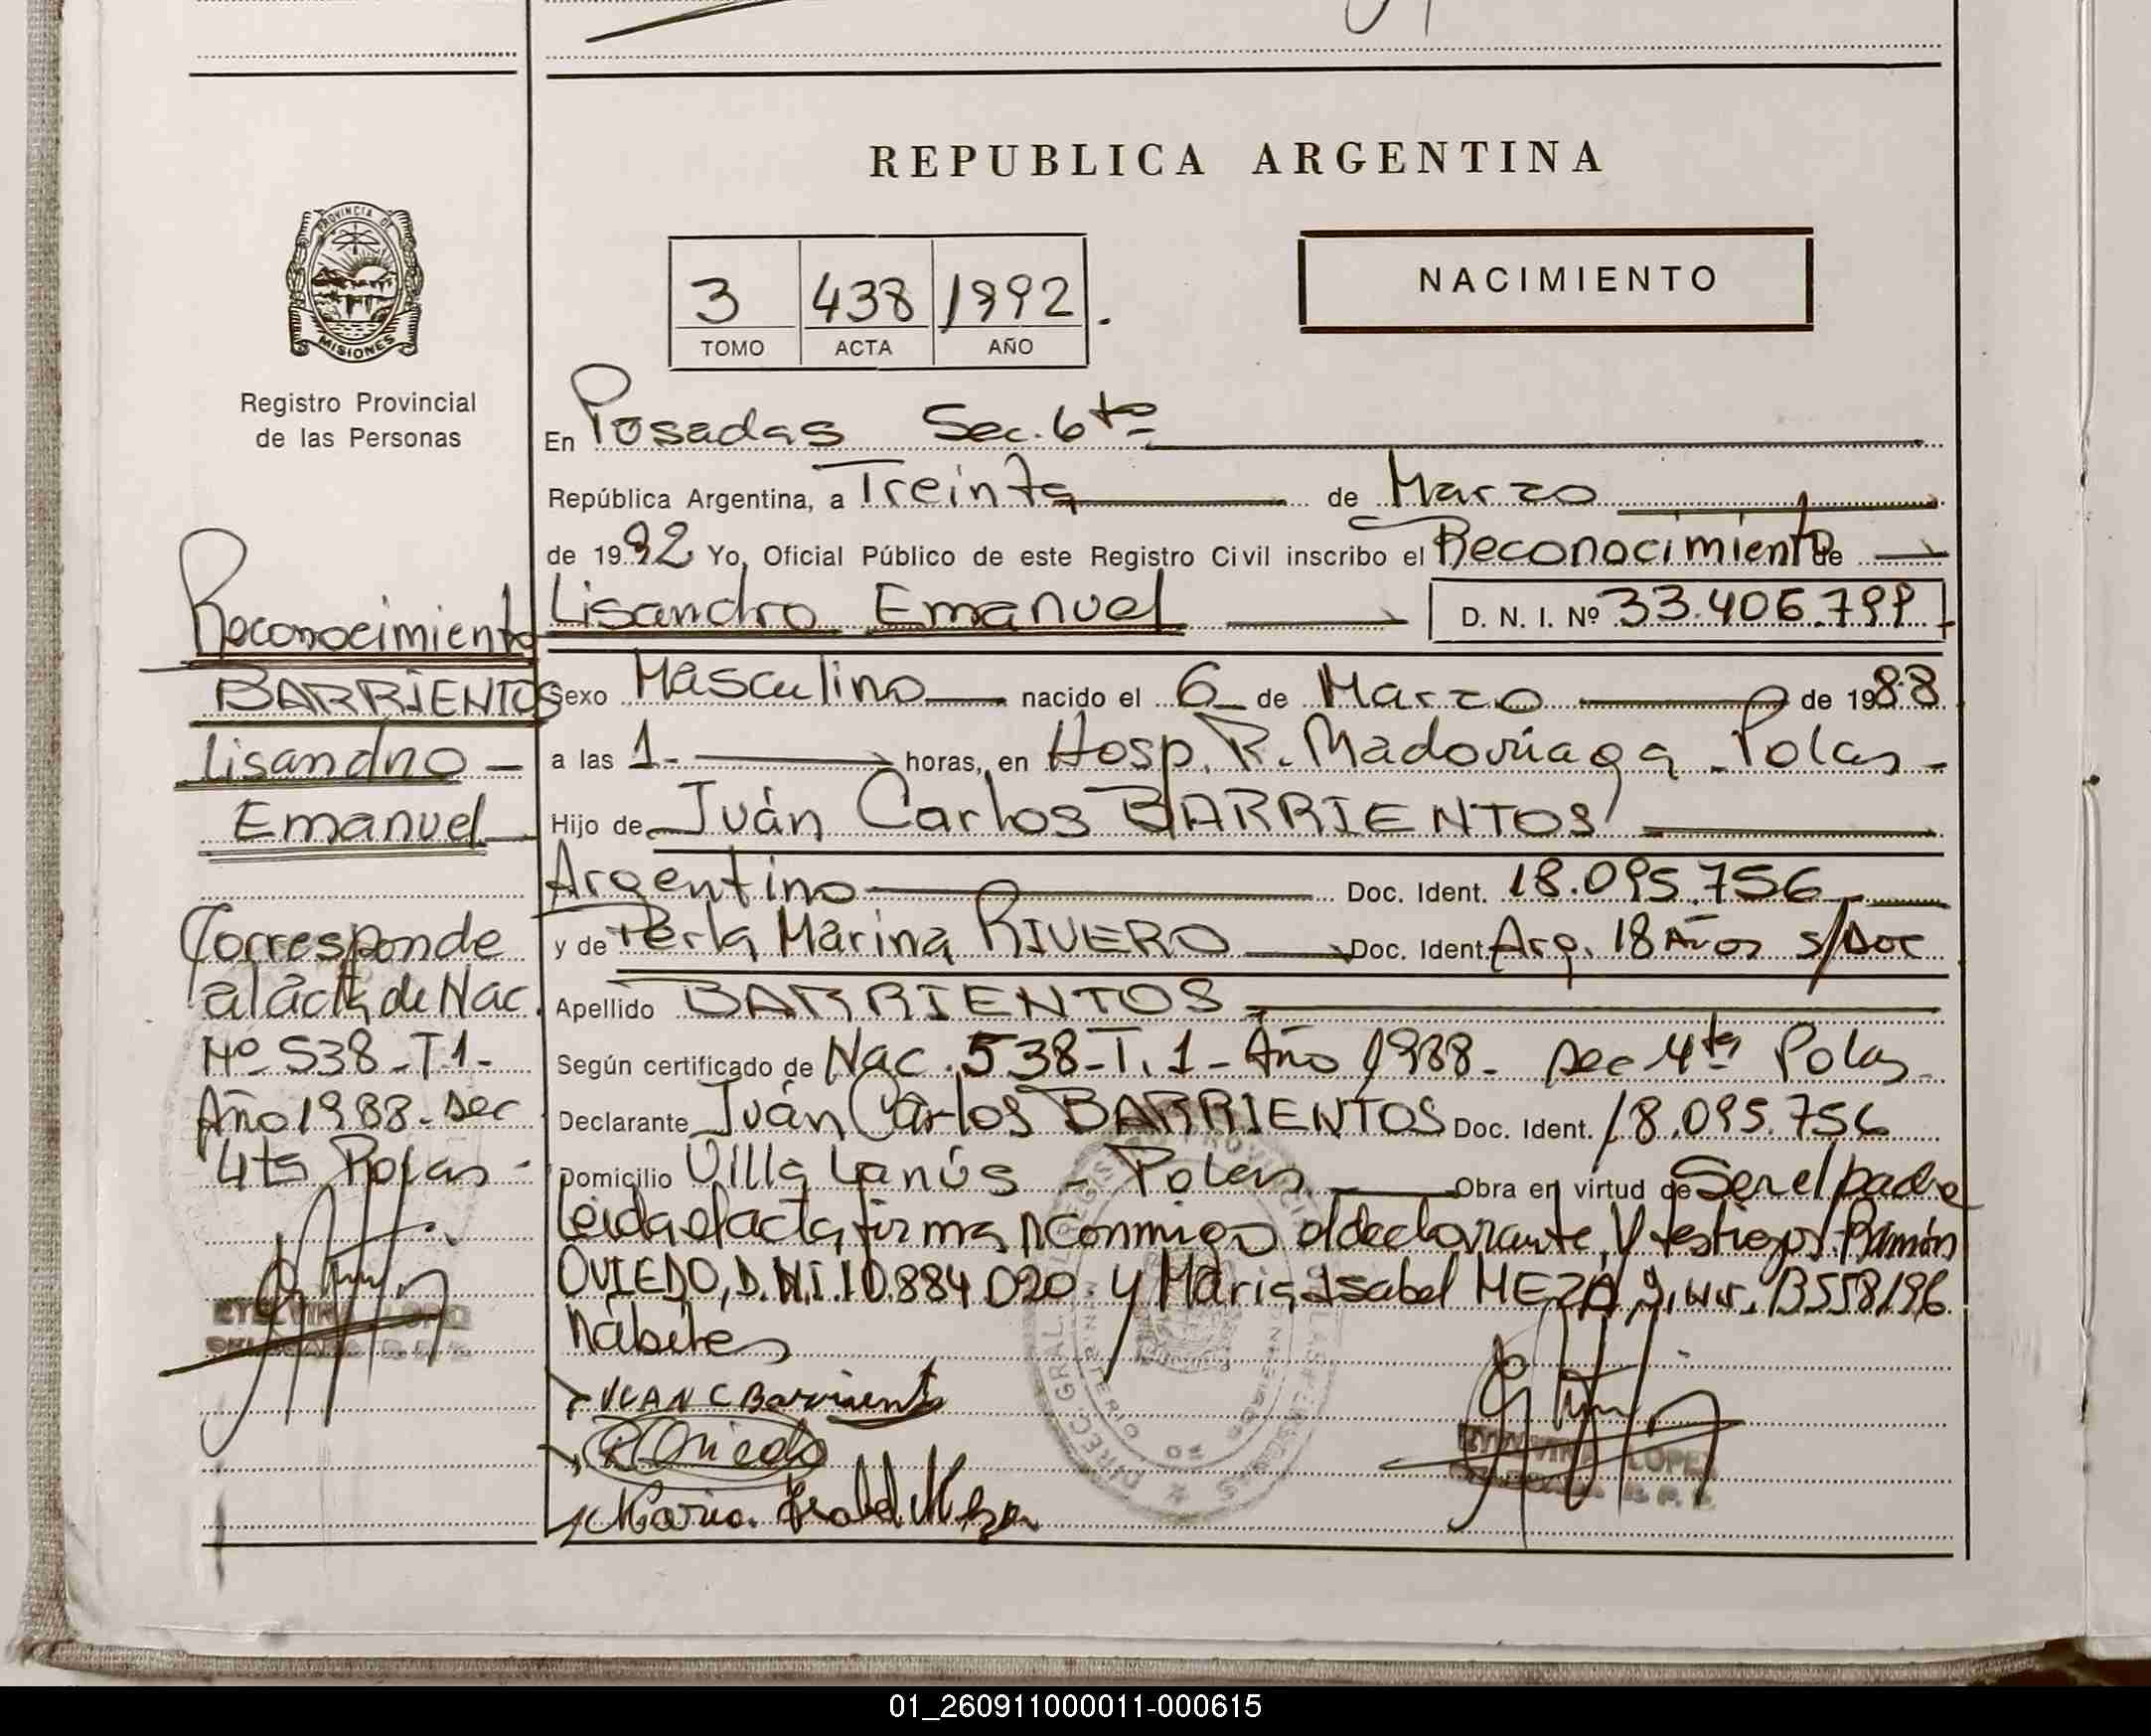 REPUBLICA ARGENTINA
PROVINCIA DE
MISIONES
3 438 1992.
TOMO ACTA AÑO
NACIMIENTO
Registro Provincial
de las Personas
En Posadas Sec. 6ta
República Argentina, a Treinta de Marzo
de 1992 Yo, Oficial Público de este Registro Civil inscribo el Reconocimiento de
Lisandro Emanuel D. N. I. Nº 33.406.799
Sexo Masculino nacido el 6 de Marzo de 1988
a las 1- horas, en Hosp. R. Madariaga - Polas -
Hijo de Juán Carlos BARRIENTOS
Argentino Doc. Ident. 18.095.756
y de Perla Marina RIVERO Doc. Ident. Arg. 18 Años s/Doc
Apellido BARRIENTOS
Según certificado de Nac. 538-T.1- Año 1988- Sec 4ta Polas
Declarante Juán Carlos BARRIENTOS Doc. Ident. 18.095.756
Domicilio Villa Lanús - Polas Obra en virtud de Ser el padre
Leida el acta firman conmigo el declarante y testigos Ramón
OVIEDO, D.N.I. 10.884.020 y Maria Isabel MEZA
hábiles
JUAN C Barrientos
R Oviedo
Maria Isabel Meza
LOPEZ
Reconocimiento
BARRIENTOS
Lisandro -
Emanuel
Corresponde
al acta de Nac.
Nº 538-T.1-
Año 1988- Sec
4ta Polas -
LOPEZ
01_260911000011-000615